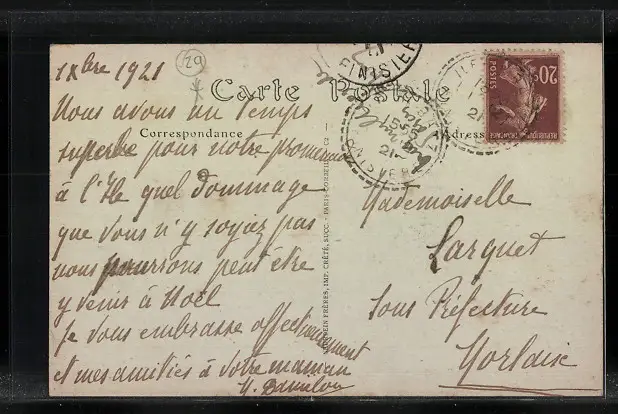 1Xbre 1921
29
Carte Postale
Correspondance
Adresse
Nous avons un temps
superbe pour notre promenade
à l'Ile quel dommage
que vous n'y soyiez pas
nous pourrons peut être
y venir à Noël
je vous embrasse affectueusement
et mes amitiés à votre maman
Mademoiselle
Larquet
Sous Préfecture
Morlaix
FINISTER
FINISTERE
21
20c
POSTES
REPUBLIQUE FRANÇAISE
FRÈRES, IMP. CRÉTÉ, SUCC. - PARIS-CORBEIL